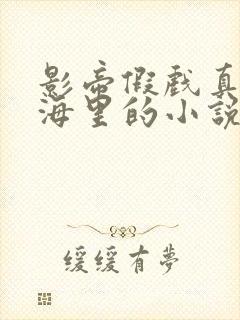 影帝假戲真
海里的小說
緩緩有夢